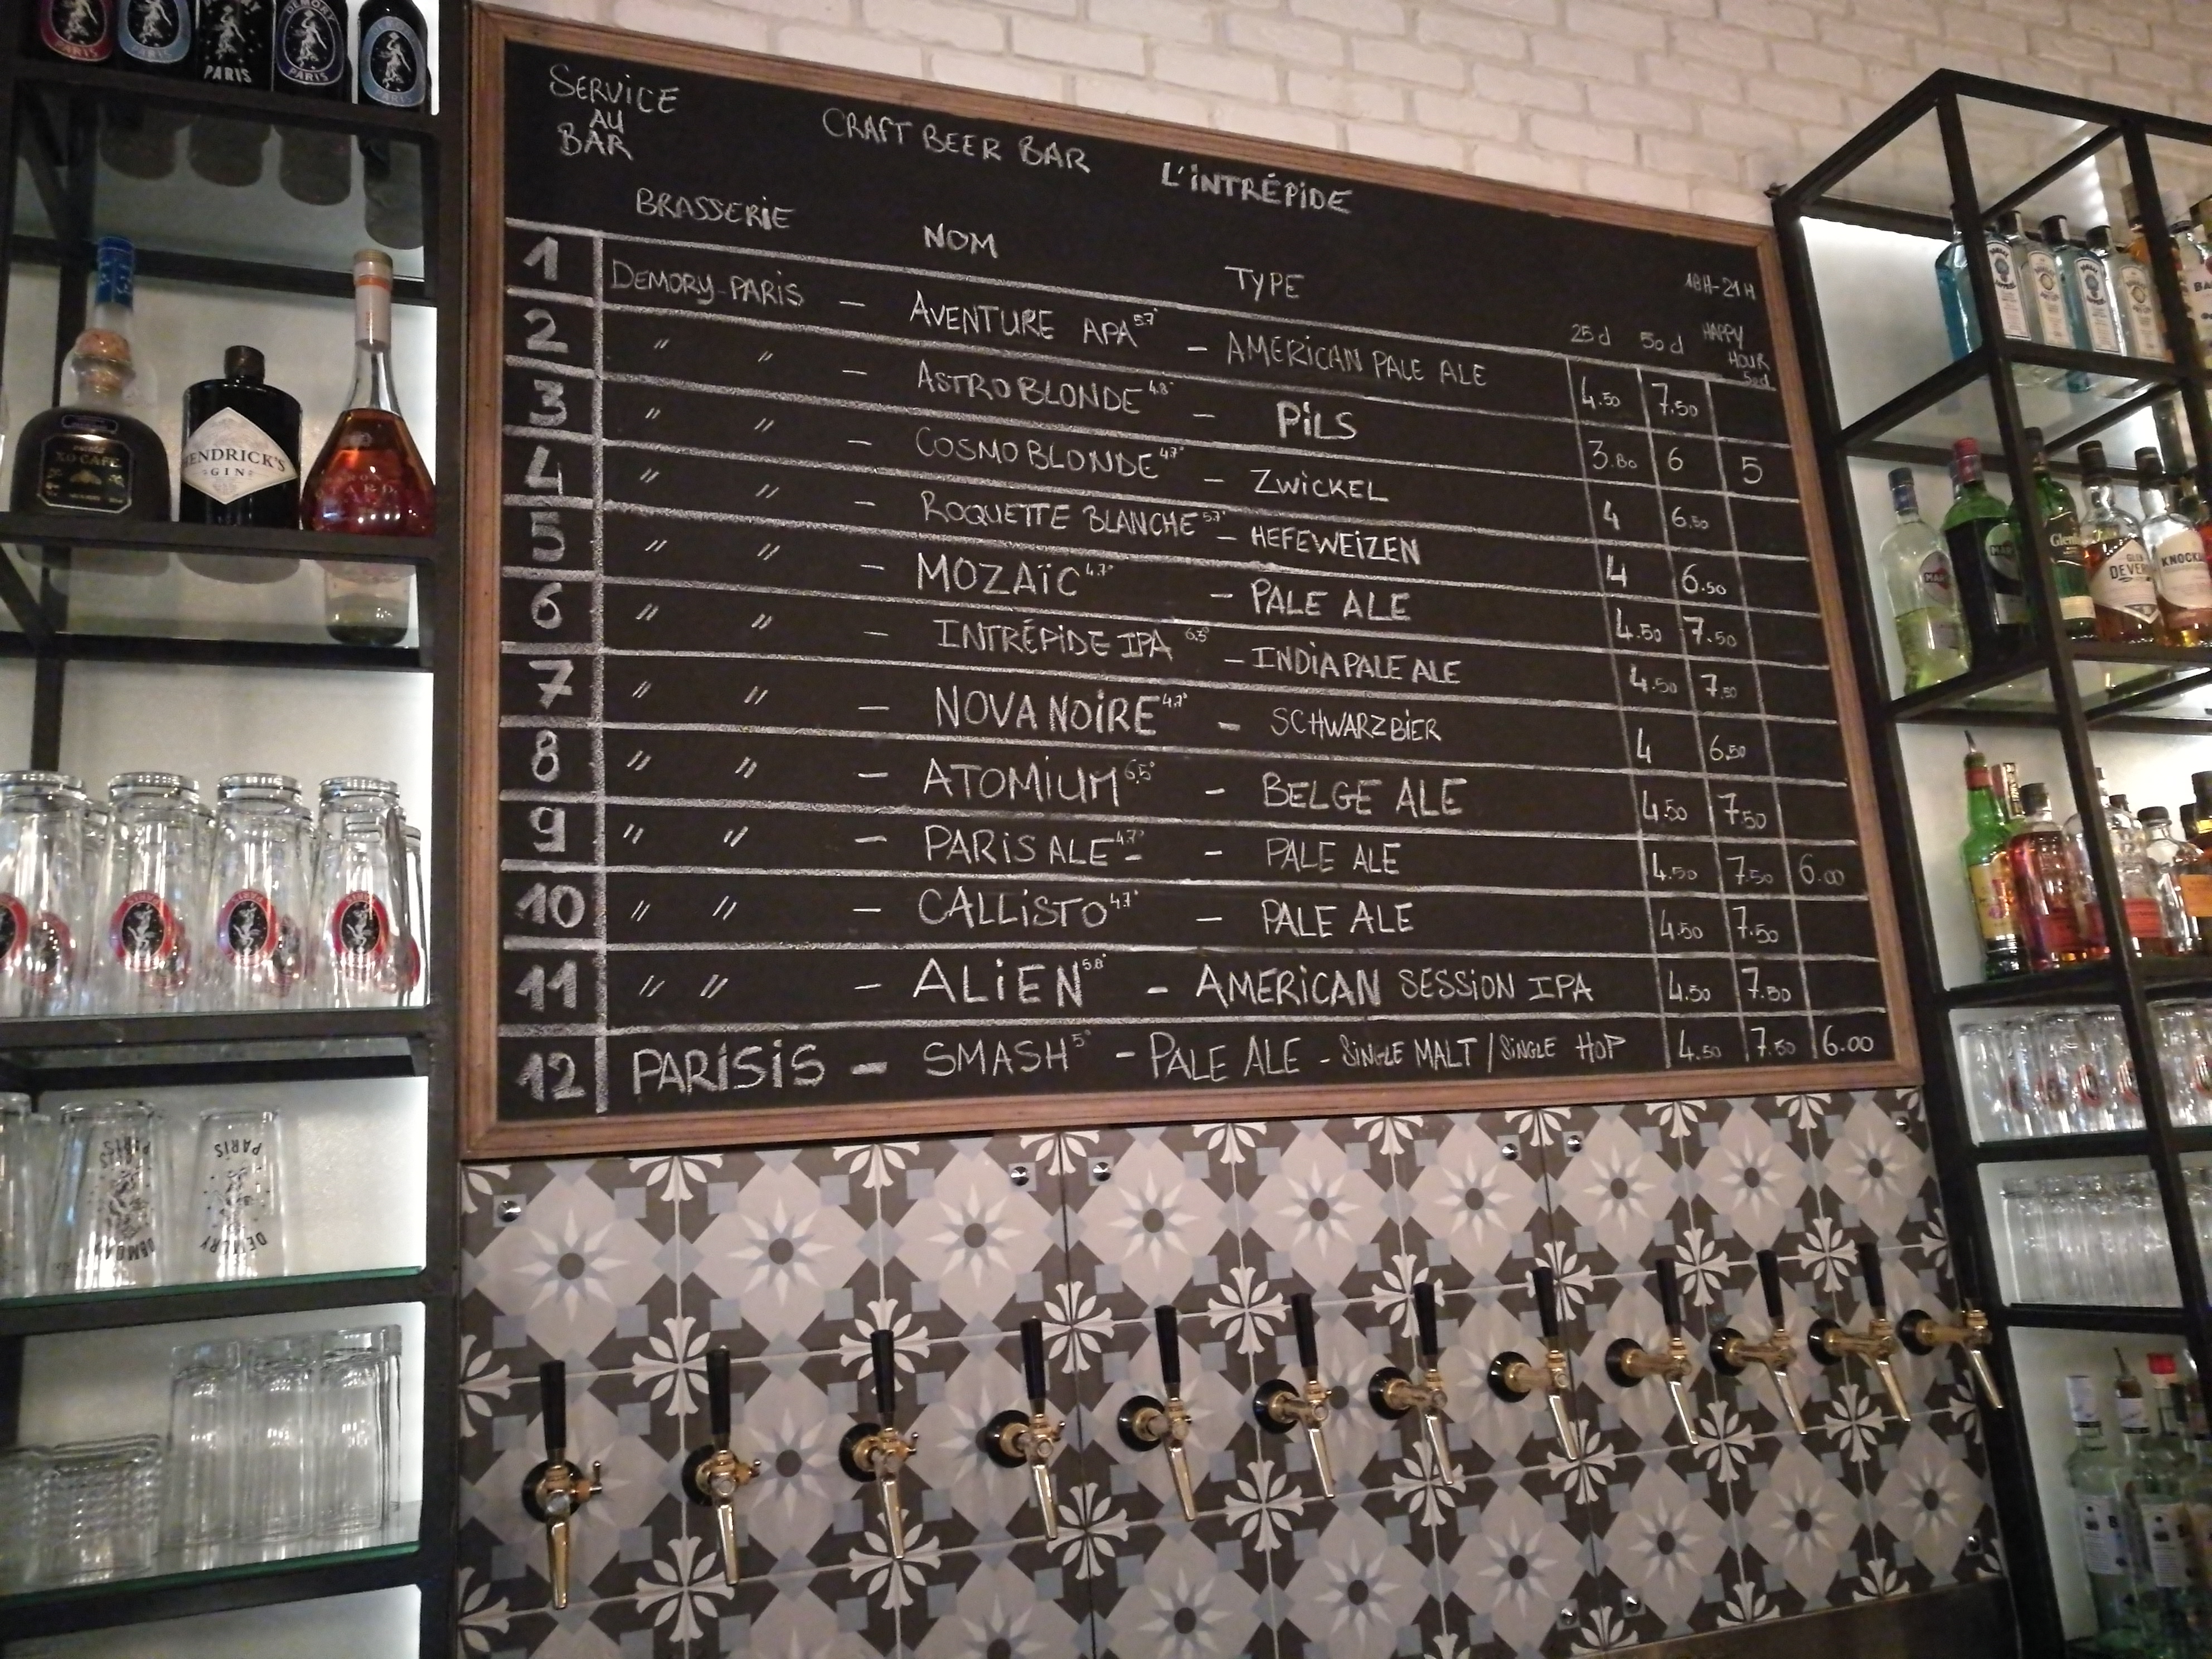 SERVICE
AU
BAR
CRAFT BEER BAR L'INTRÉPIDE
BRASSERIE NOM TYPE 25 d 50 d 18H-21H HAPPY HOUR 50d
1 DEMORY-PARIS — AVENTURE APA 5.7° — AMERICAN PALE ALE 4.50 7.50
2 " " — ASTROBLONDE 4.8° — PILS 3.80 6 5
3 " " — COSMOBLONDE 4.7° — ZWICKEL 4 6.50
4 " " — ROQUETTE BLANCHE 5.7° — HEFEWEIZEN 4 6.50
5 " " — MOZAÏC 4.7° — PALE ALE 4.50 7.50
6 " " — INTRÉPIDE IPA 6.5° — INDIA PALE ALE 4.50 7.50
7 " " — NOVA NOIRE 4.7° — SCHWARZBIER 4 6.50
8 " " — ATOMIUM 6,5° — BELGE ALE 4.50 7.50
9 " " — PARIS ALE 4.7° - — PALE ALE 4.50 7.50 6.00
10 " " — CALLISTO 4.7° — PALE ALE 4.50 7.50
11 " " — ALIEN 5.8° — AMERICAN SESSION IPA 4.50 7.50
12 PARISIS — SMASH 5° — PALE ALE - SINGLE MALT / SINGLE HOP 4.50 7.50 6.00
PARIS
PARIS
DEMORY
PARIS
PARIS
PARIS
XO CAFE
HENDRICK'S
GIN
PARIS
DEMORY
PARIS
DEMORY
GLEN
DEVER
KNOCK